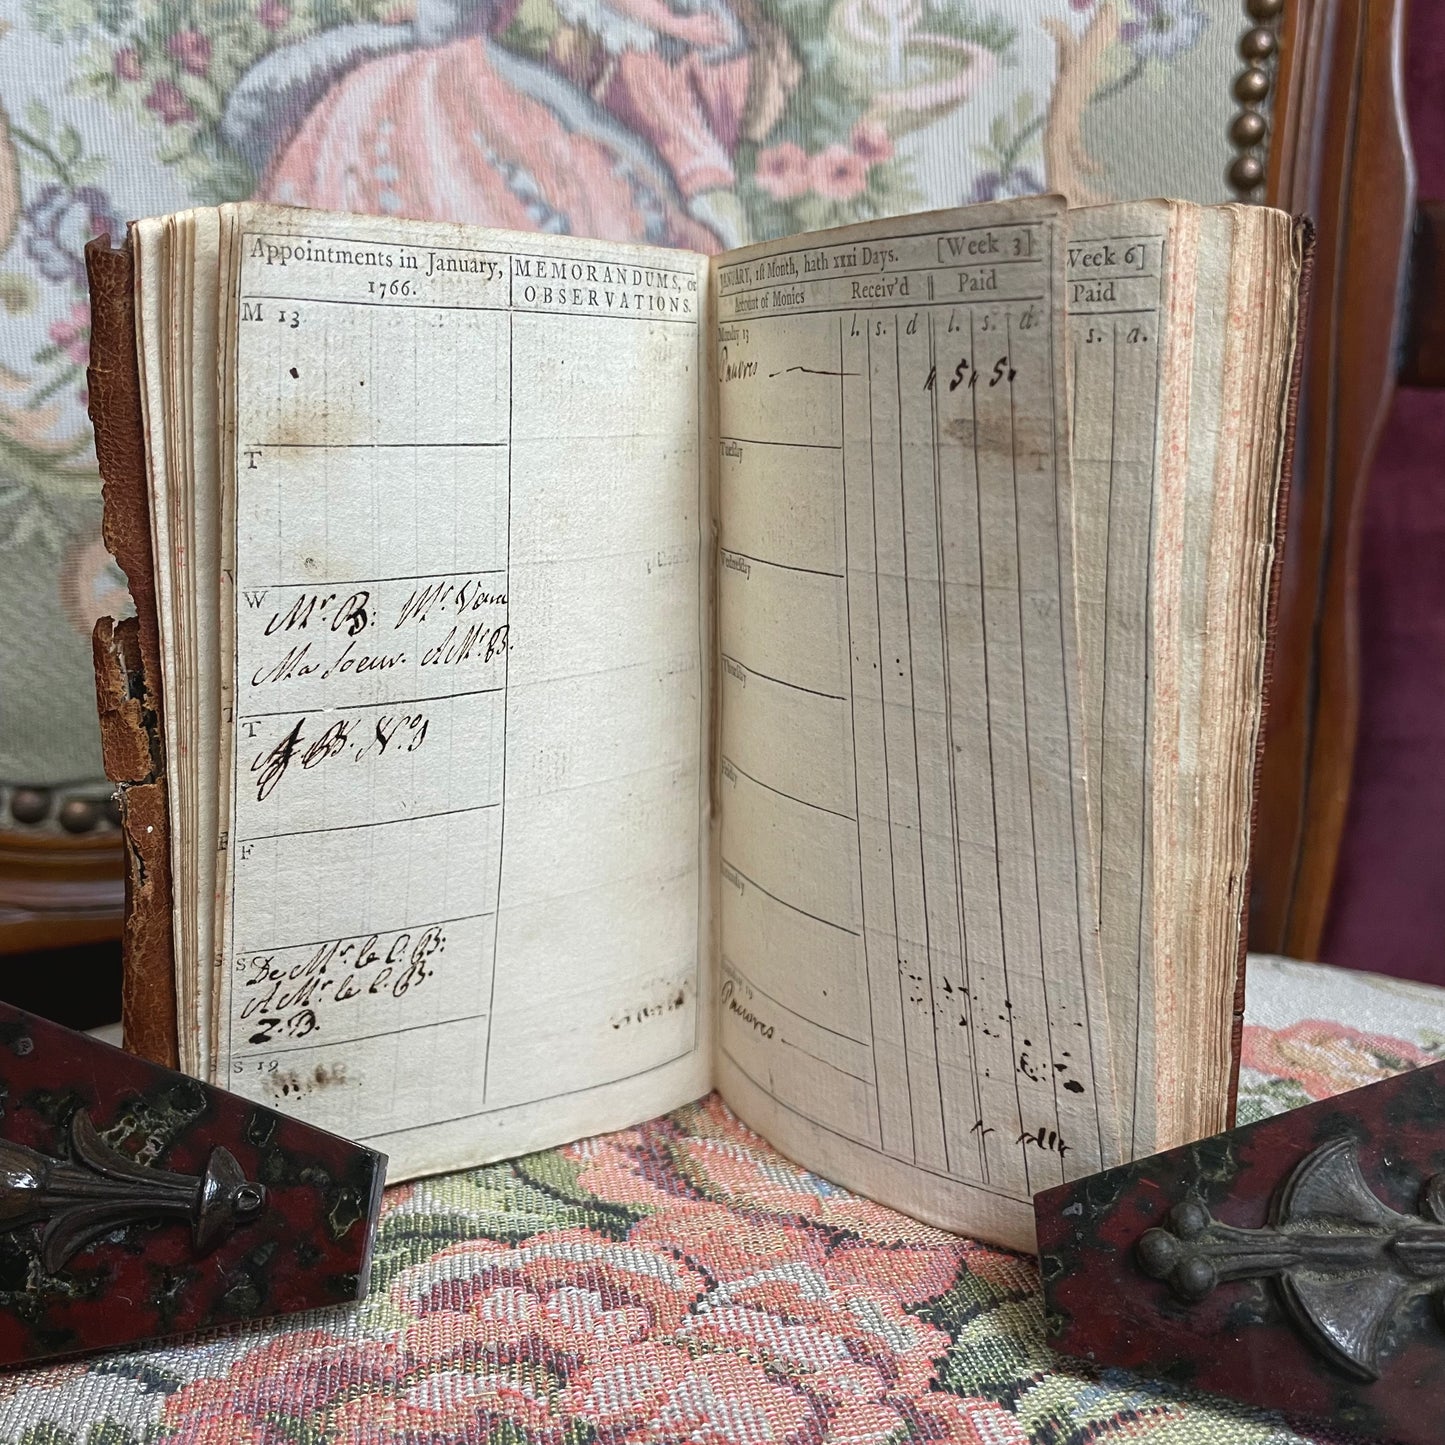 Appointments in January,
1766.
MEMORANDUMS, or
OBSERVATIONS.
M 13
T
W
Mr. B: Mr.
Ma soeur. A Mr. B.
T
B. No.
F
S
De Mr. le C. B:
A Mr. le C. B.
Z. B.
S 19
JANUARY, 1st Month, hath xxxi Days. [Week 3]
Account of Monies Receiv'd Paid
l. s. d l. s. d.
Monday 13
Pauvres 5 5
Tuesday
Wednesday
Thursday
Friday
Saturday
Pauvres
Week 6]
Paid
s. d.
T
W
T
F
S
S